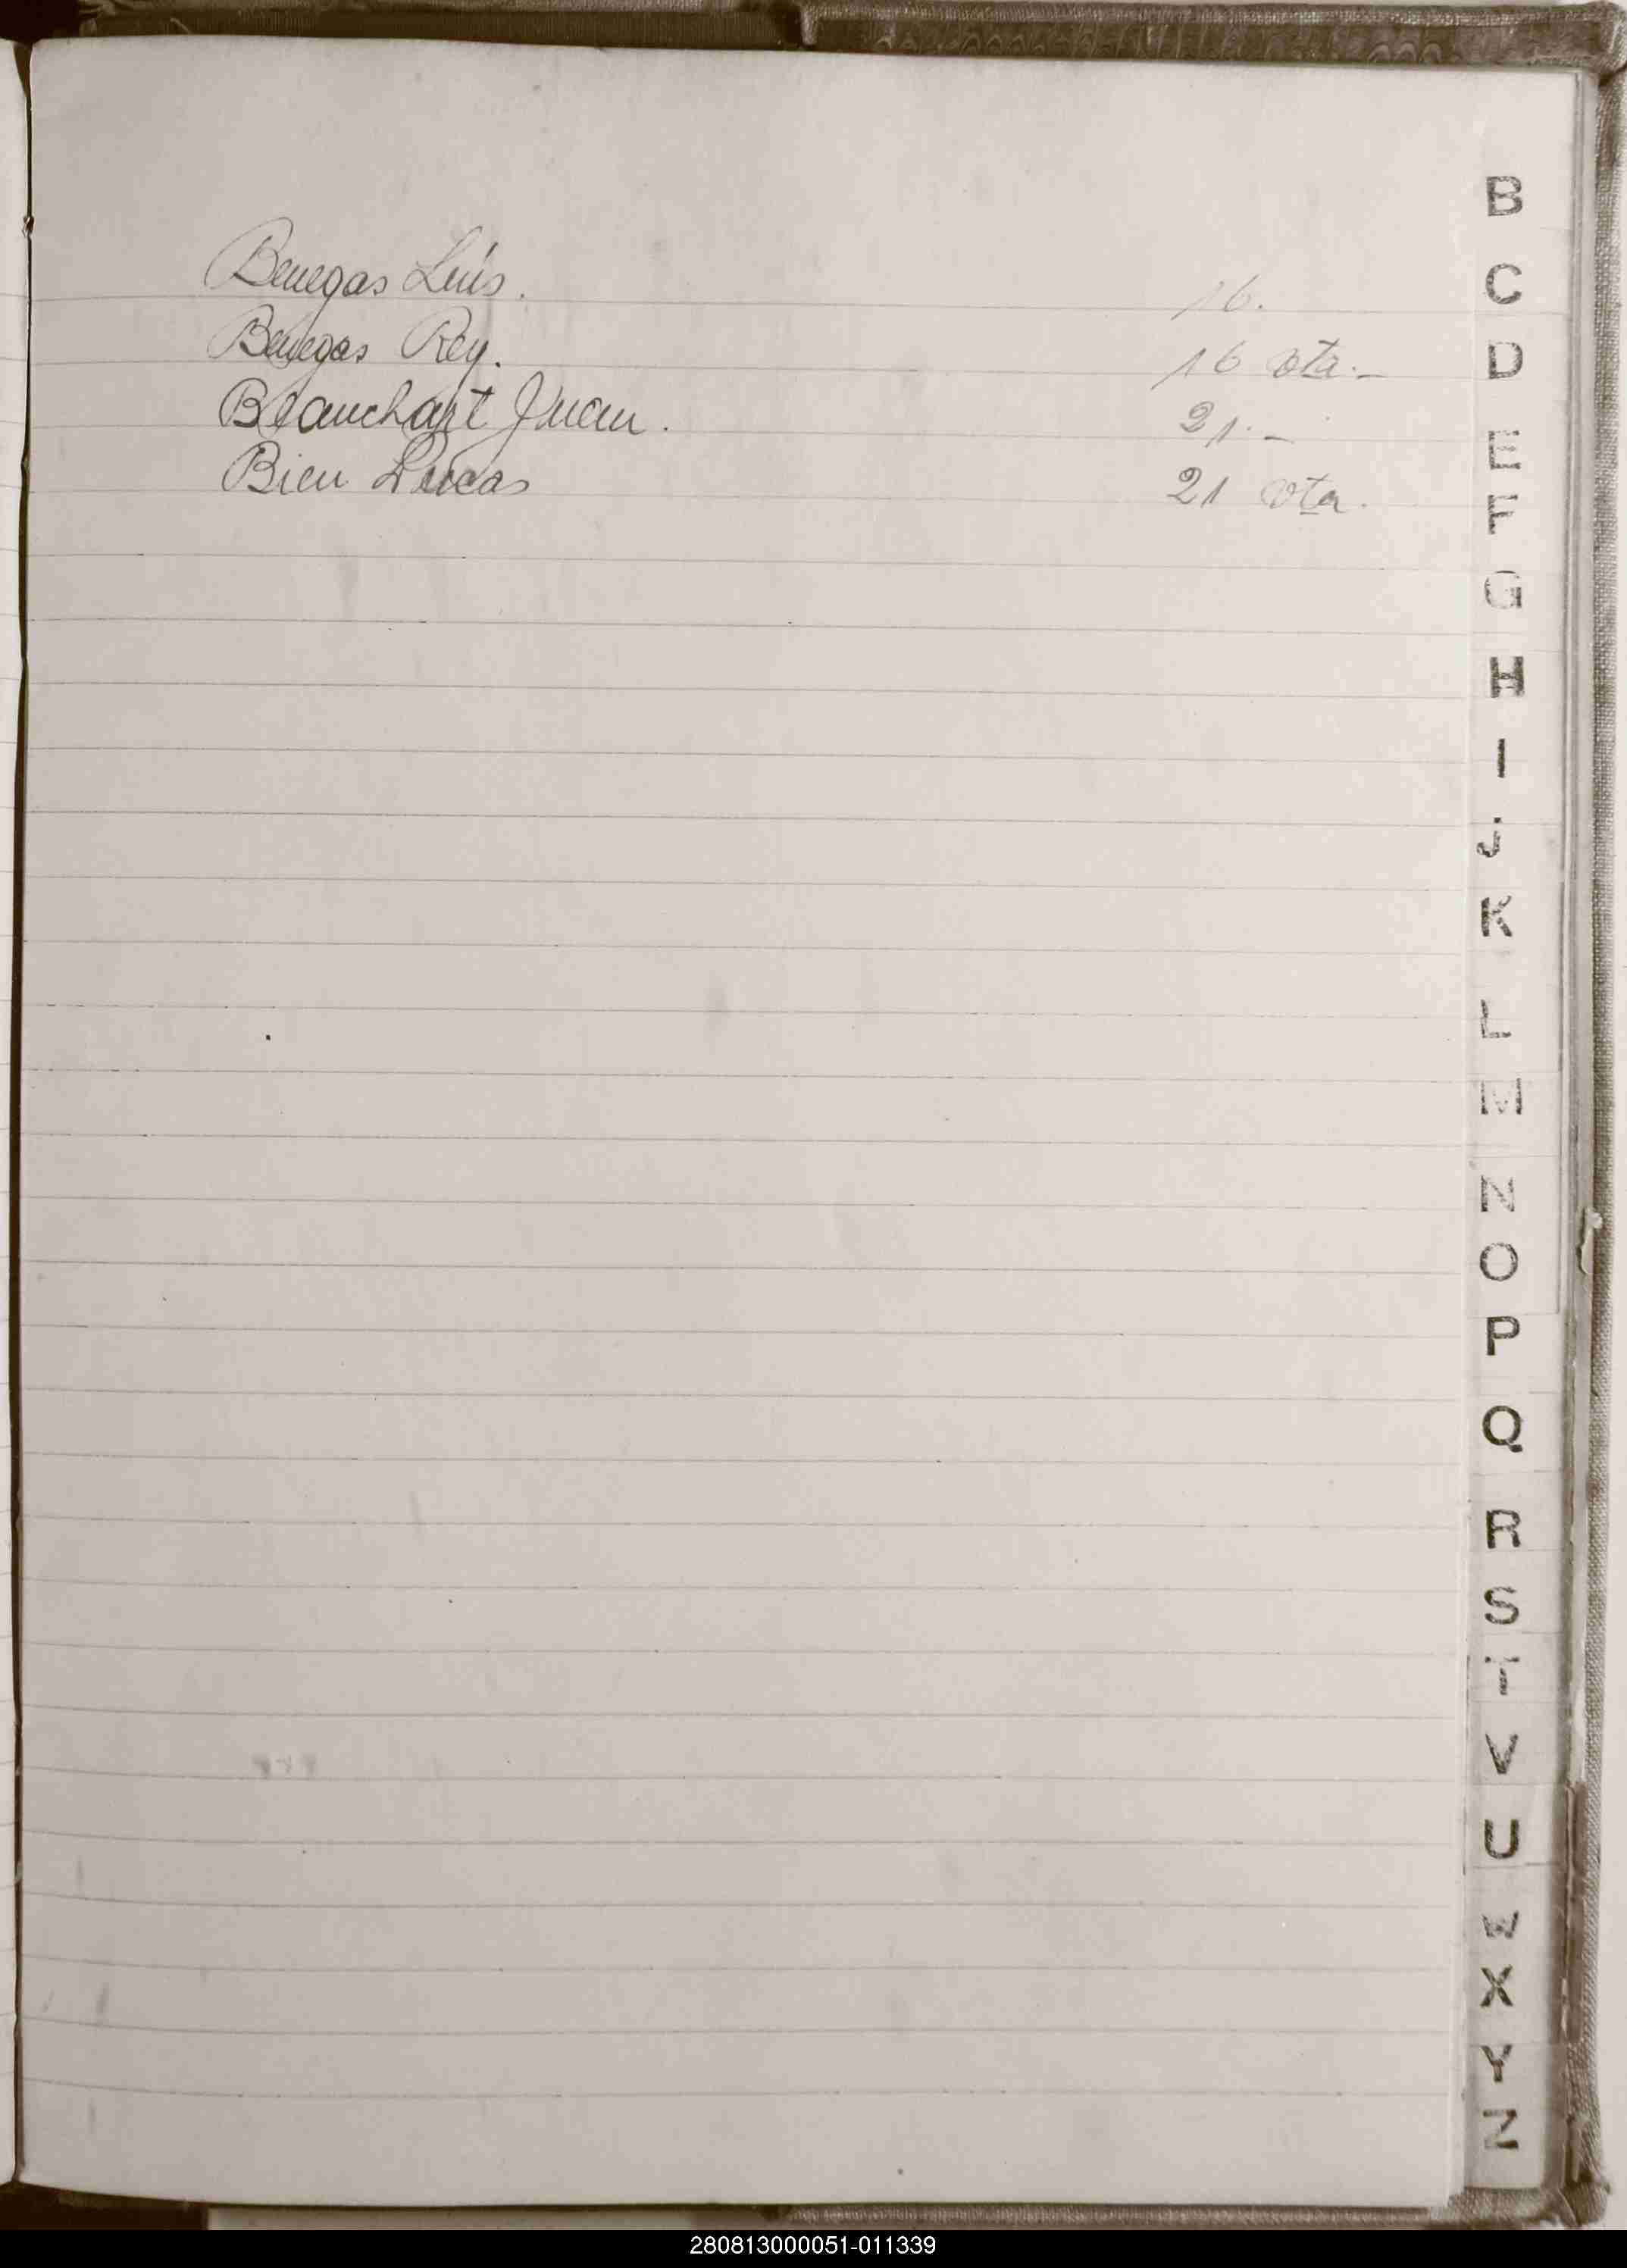 Benegas Luis. 16.
Benegas Rey. 16 vta.-
Beauchart Juan. 21.-
Bien Lucas 21 vta.
B
C
D
E
F
G
H
I
J
K
L
M
N
O
P
Q
R
S
T
V
U
W
X
Y
Z
280813000051-011339